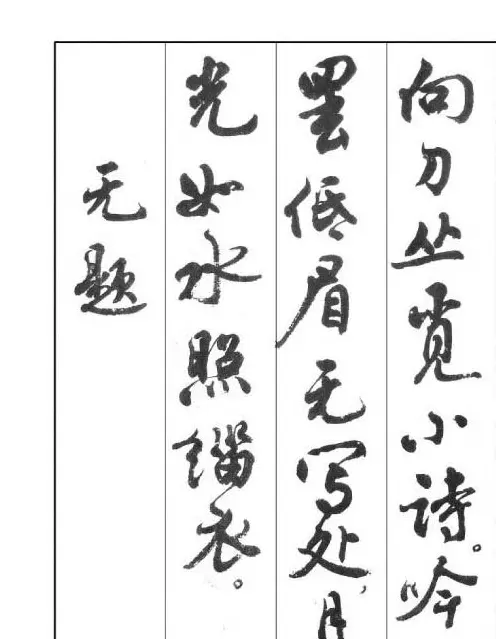 向刀丛觅小詩。吟
罢低眉无写处，月
光如水照缁衣。
无题